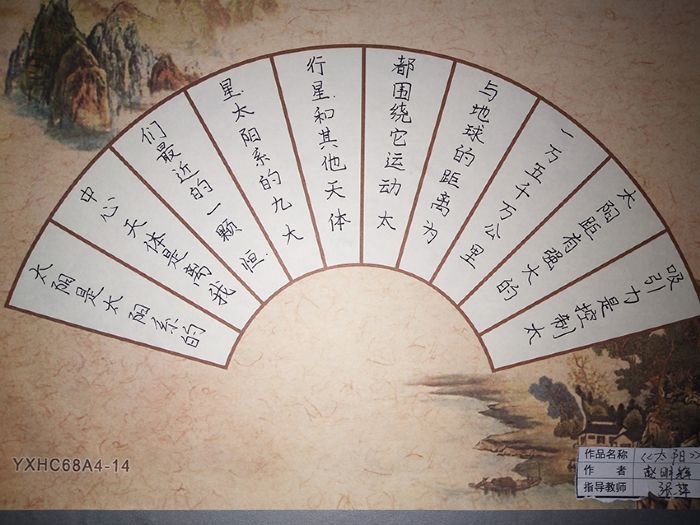 太阳是太阳系的
中心天体是离我
们最近的一颗恒
星.太阳系的九大
行星和其他天体
都围绕它运动太
与地球的距离为
一万五千万公里
太阳距有强大的
吸引力是控制太
YXHC68A4-14
作品名称 《太阳》
作者 赵明辉
指导教师 张萍